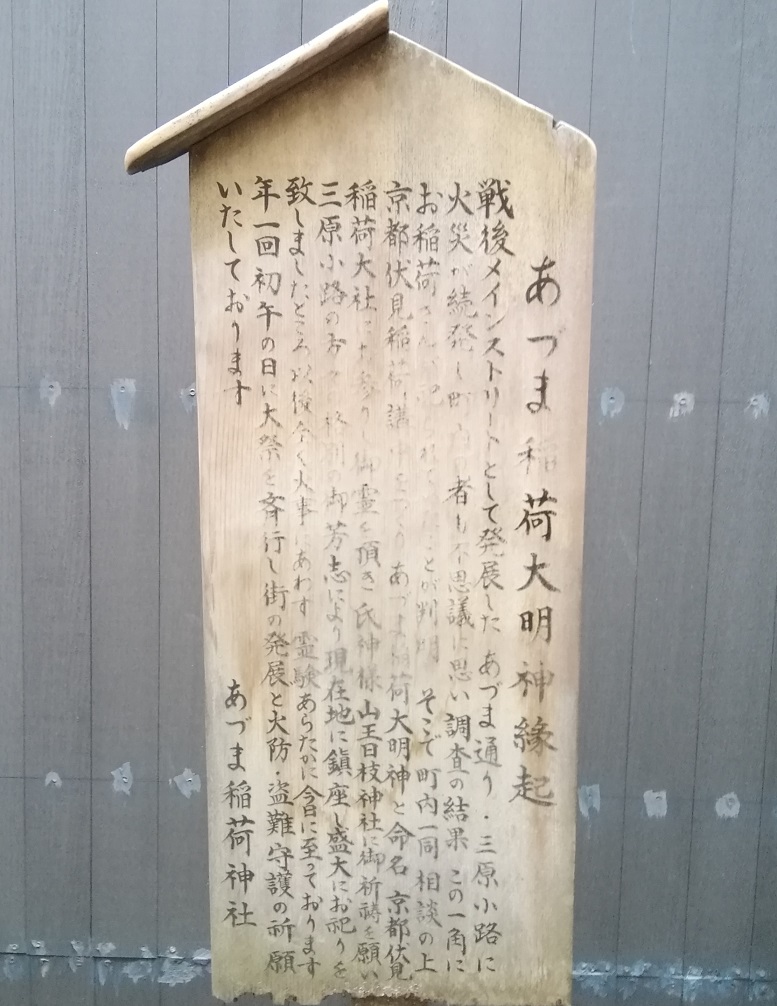 あづま稲荷大明神縁起
戦後メインストリートとして発展した あづま通り・三原小路に
火災が続発し町内の者も不思議に思い 調査の結果 この一角に
お稲荷さんが祀られていたことが判明 そこで町内一同相談の上
京都伏見稲荷講中をつくり あづま稲荷大明神と命名 京都伏見
稲荷大社にお参りし御霊を頂き氏神様山王日枝神社に御祈祷を願い
三原小路の方々 格別の御芳志により現在地に鎮座し盛大にお祀りを
致しましたところ以後全く火事にあわず 霊験あらたかに今日に至っております
年一回初午の日に大祭を斉行し街の発展と火防・盗難守護の祈願
いたしております
あづま稲荷神社